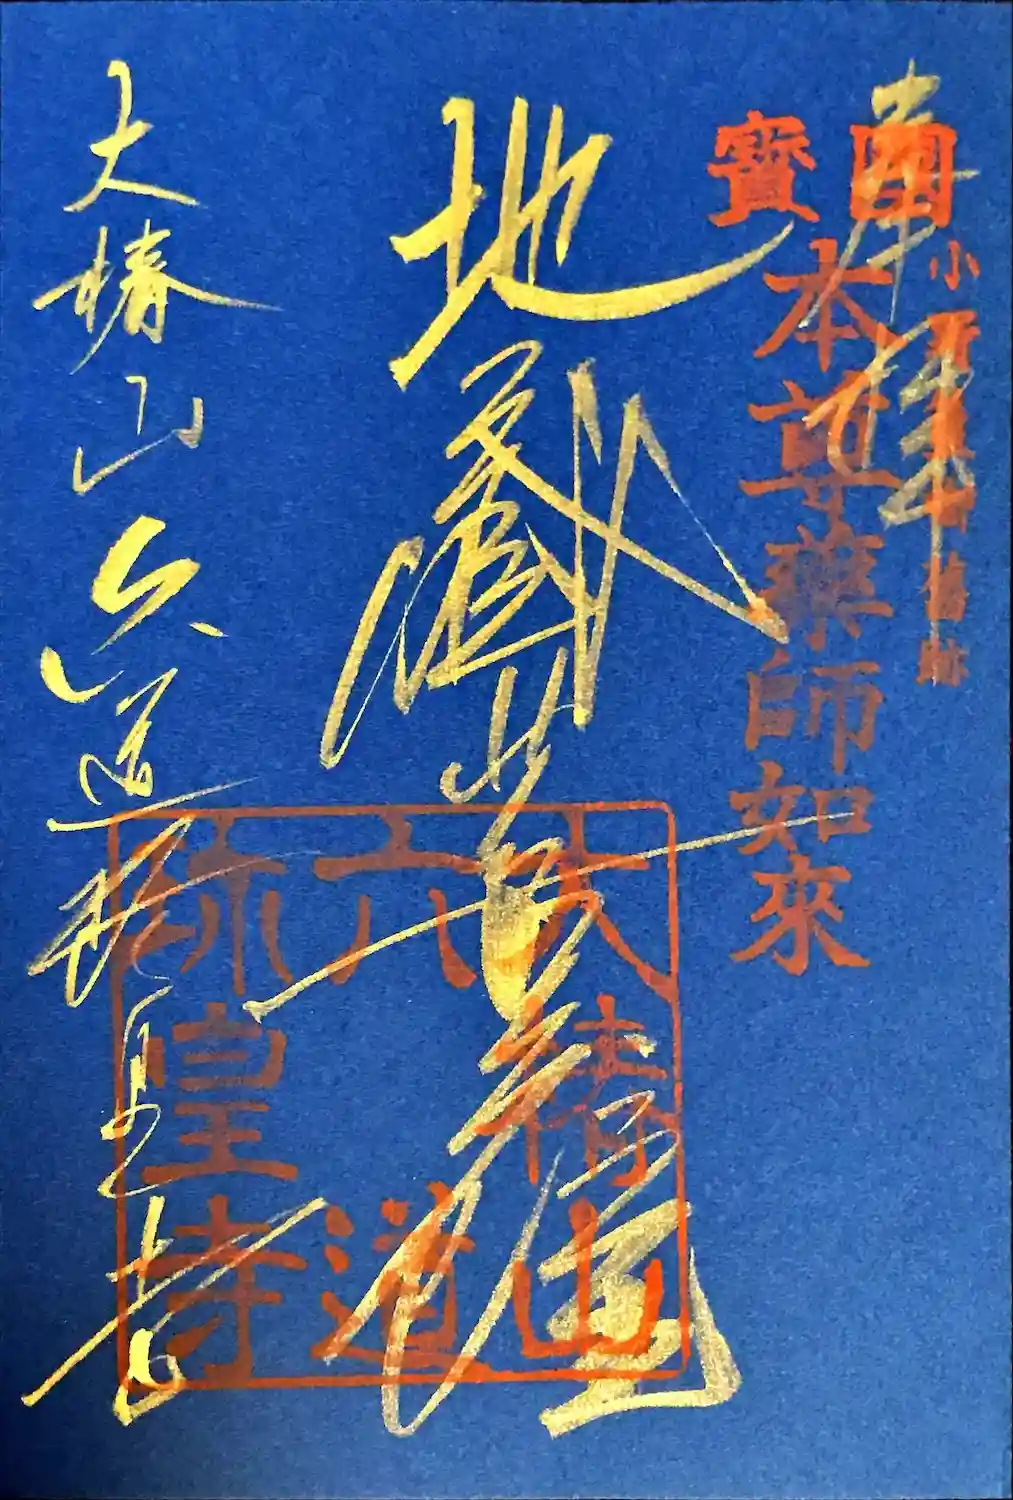 奉拝
國寶
小野篁卿舊跡
本尊藥師如來
地蔵菩薩
大椿山
六道
珎皇寺
大椿山 六道珍皇寺